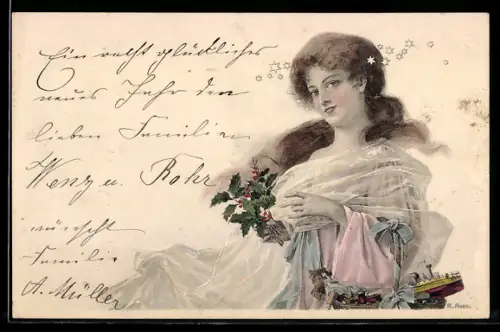 Ein recht glückliches
neues Jahr den
lieben Familien
Wenz u. Rohr
wünscht
Familie
A. Müller